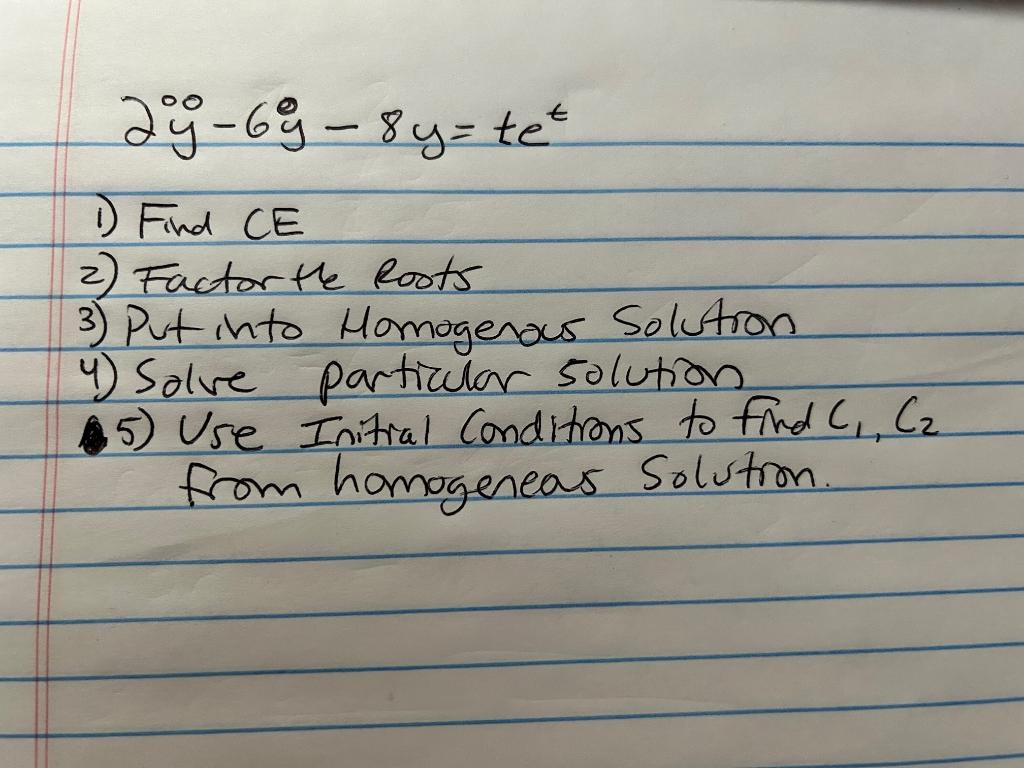 2ÿ - 6ẏ - 8y = te^t
1) Find CE
2) Factor the Roots
3) Put into Homogenous Solution
4) Solve particular solution
5) Use Initial Conditions to find C₁, C₂
from homogeneas Solution.